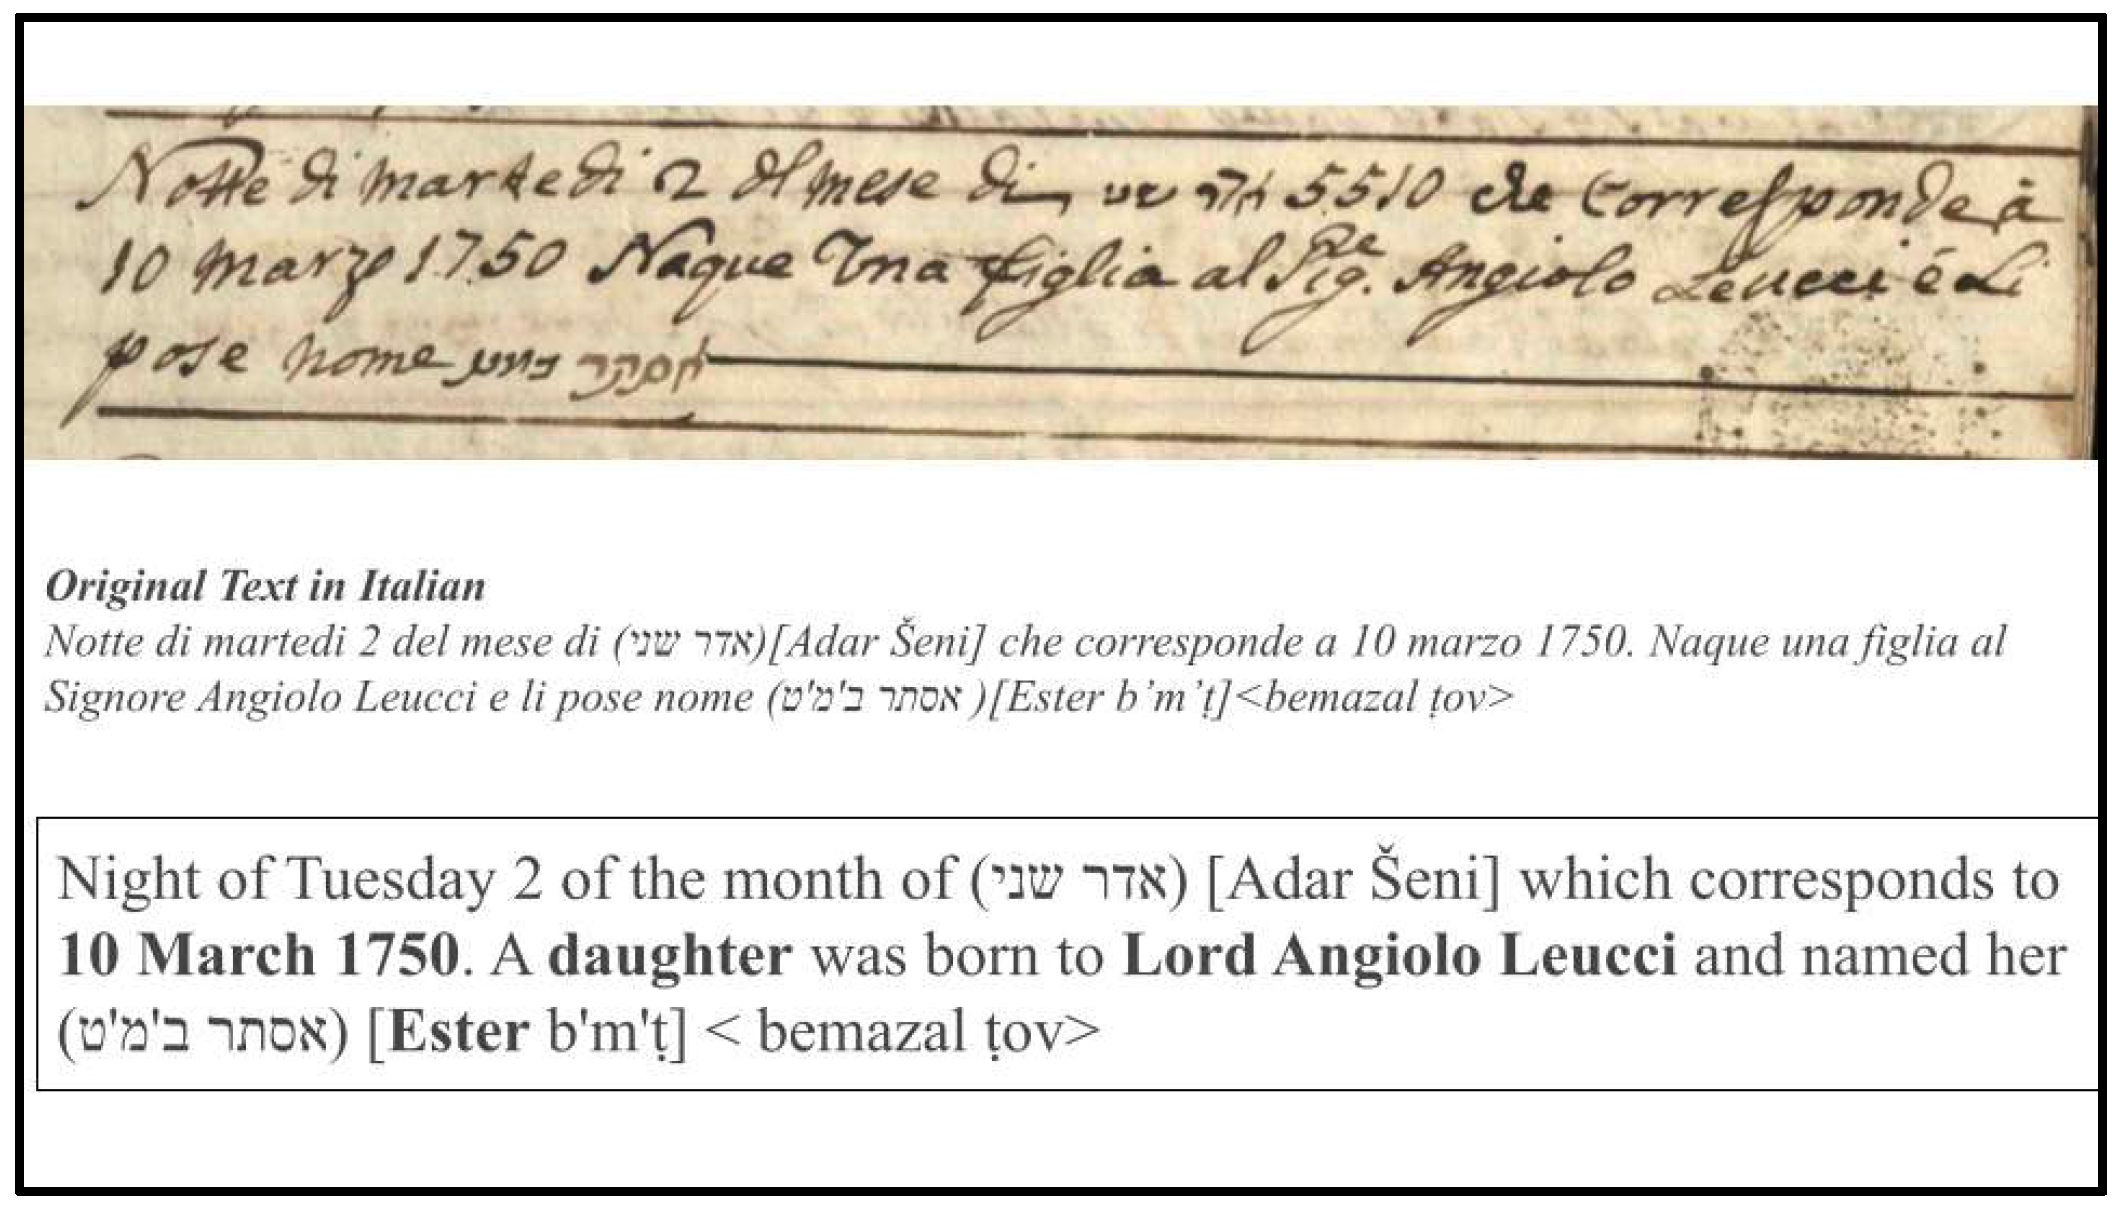 Notte di martedi 2 del mese di אדר שני 5510 che Corresponde à
10 marzo 1750 Naque Una figlia al Sig.re Angiolo Leucci é Li
pose nome אסתר במט
Original Text in Italian
Notte di martedi 2 del mese di (אדר שני)[Adar Šeni] che corresponde a 10 marzo 1750. Naque una figlia al
Signore Angiolo Leucci e li pose nome (אסתר ב'מ'ט )[Ester b’m’ṭ]<bemazal ṭov>
Night of Tuesday 2 of the month of (אדר שני) [Adar Šeni] which corresponds to
10 March 1750. A daughter was born to Lord Angiolo Leucci and named her
(אסתר ב'מ'ט) [Ester b'm'ṭ] < bemazal ṭov>